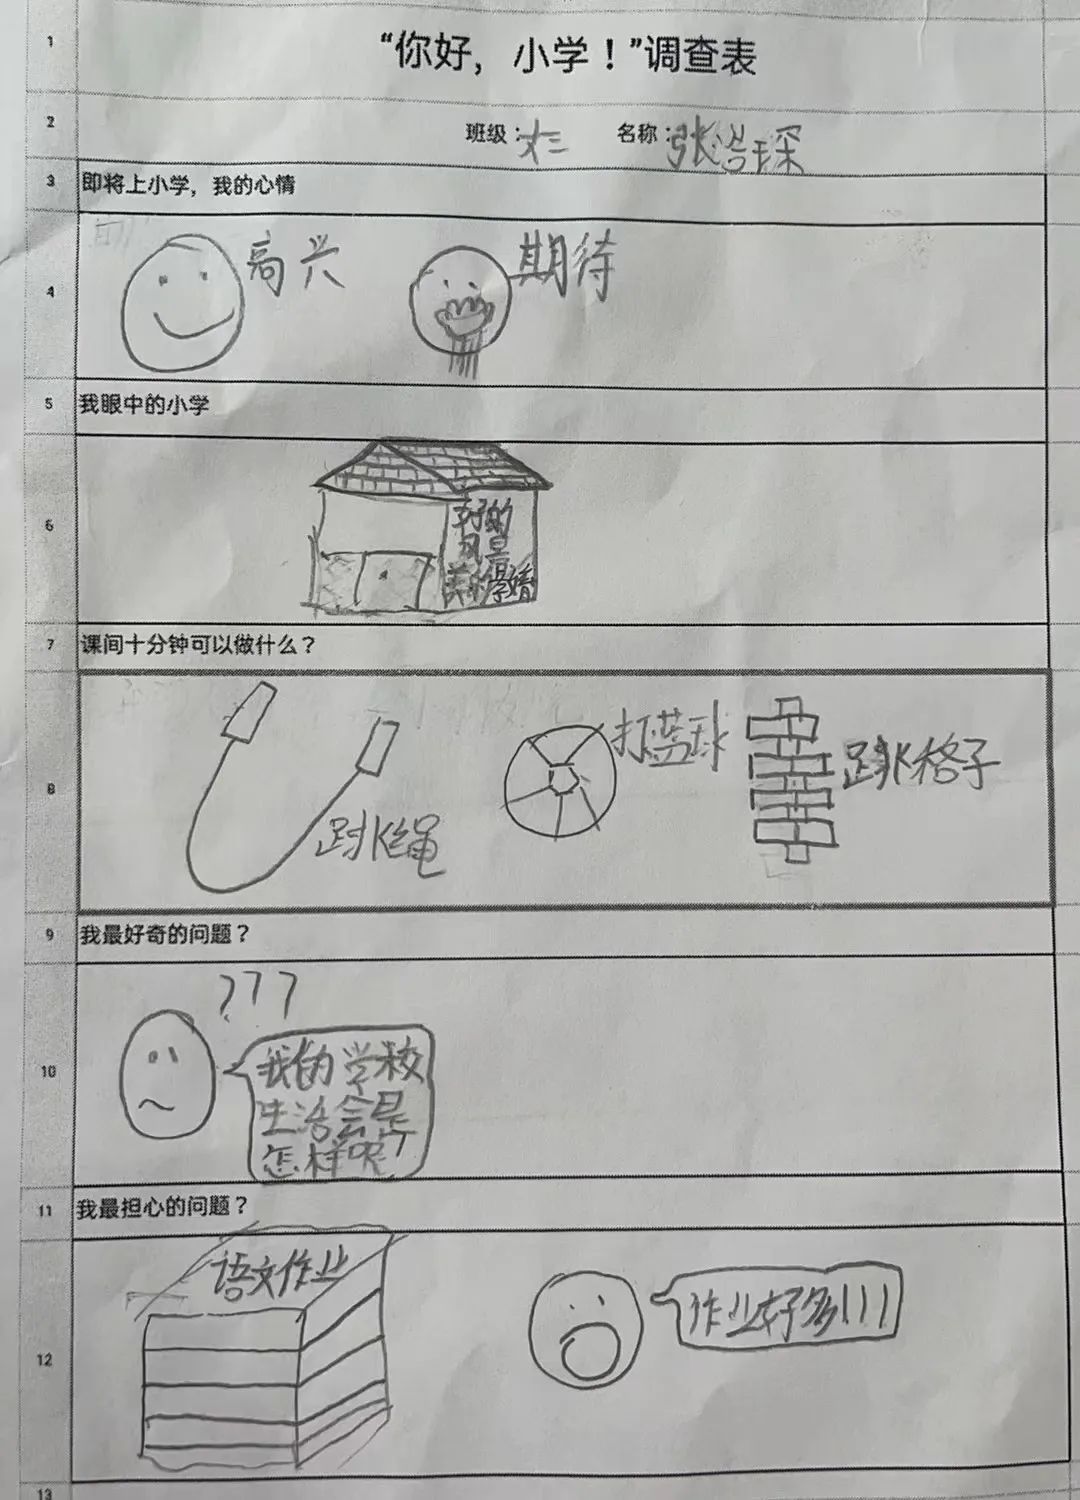 1
“你好，小学！”调查表
2
班级：大三 名称：张浩琛
3
即将上小学，我的心情
4
高兴
期待
5
我眼中的小学
6
好的
风景
美的
7
课间十分钟可以做什么？
8
跳绳
打蓝球
跳格子
9
我最好奇的问题？
10
???
我的学校
生活会是
怎样呢
11
我最担心的问题？
12
语文作业
作业好多!!!
13